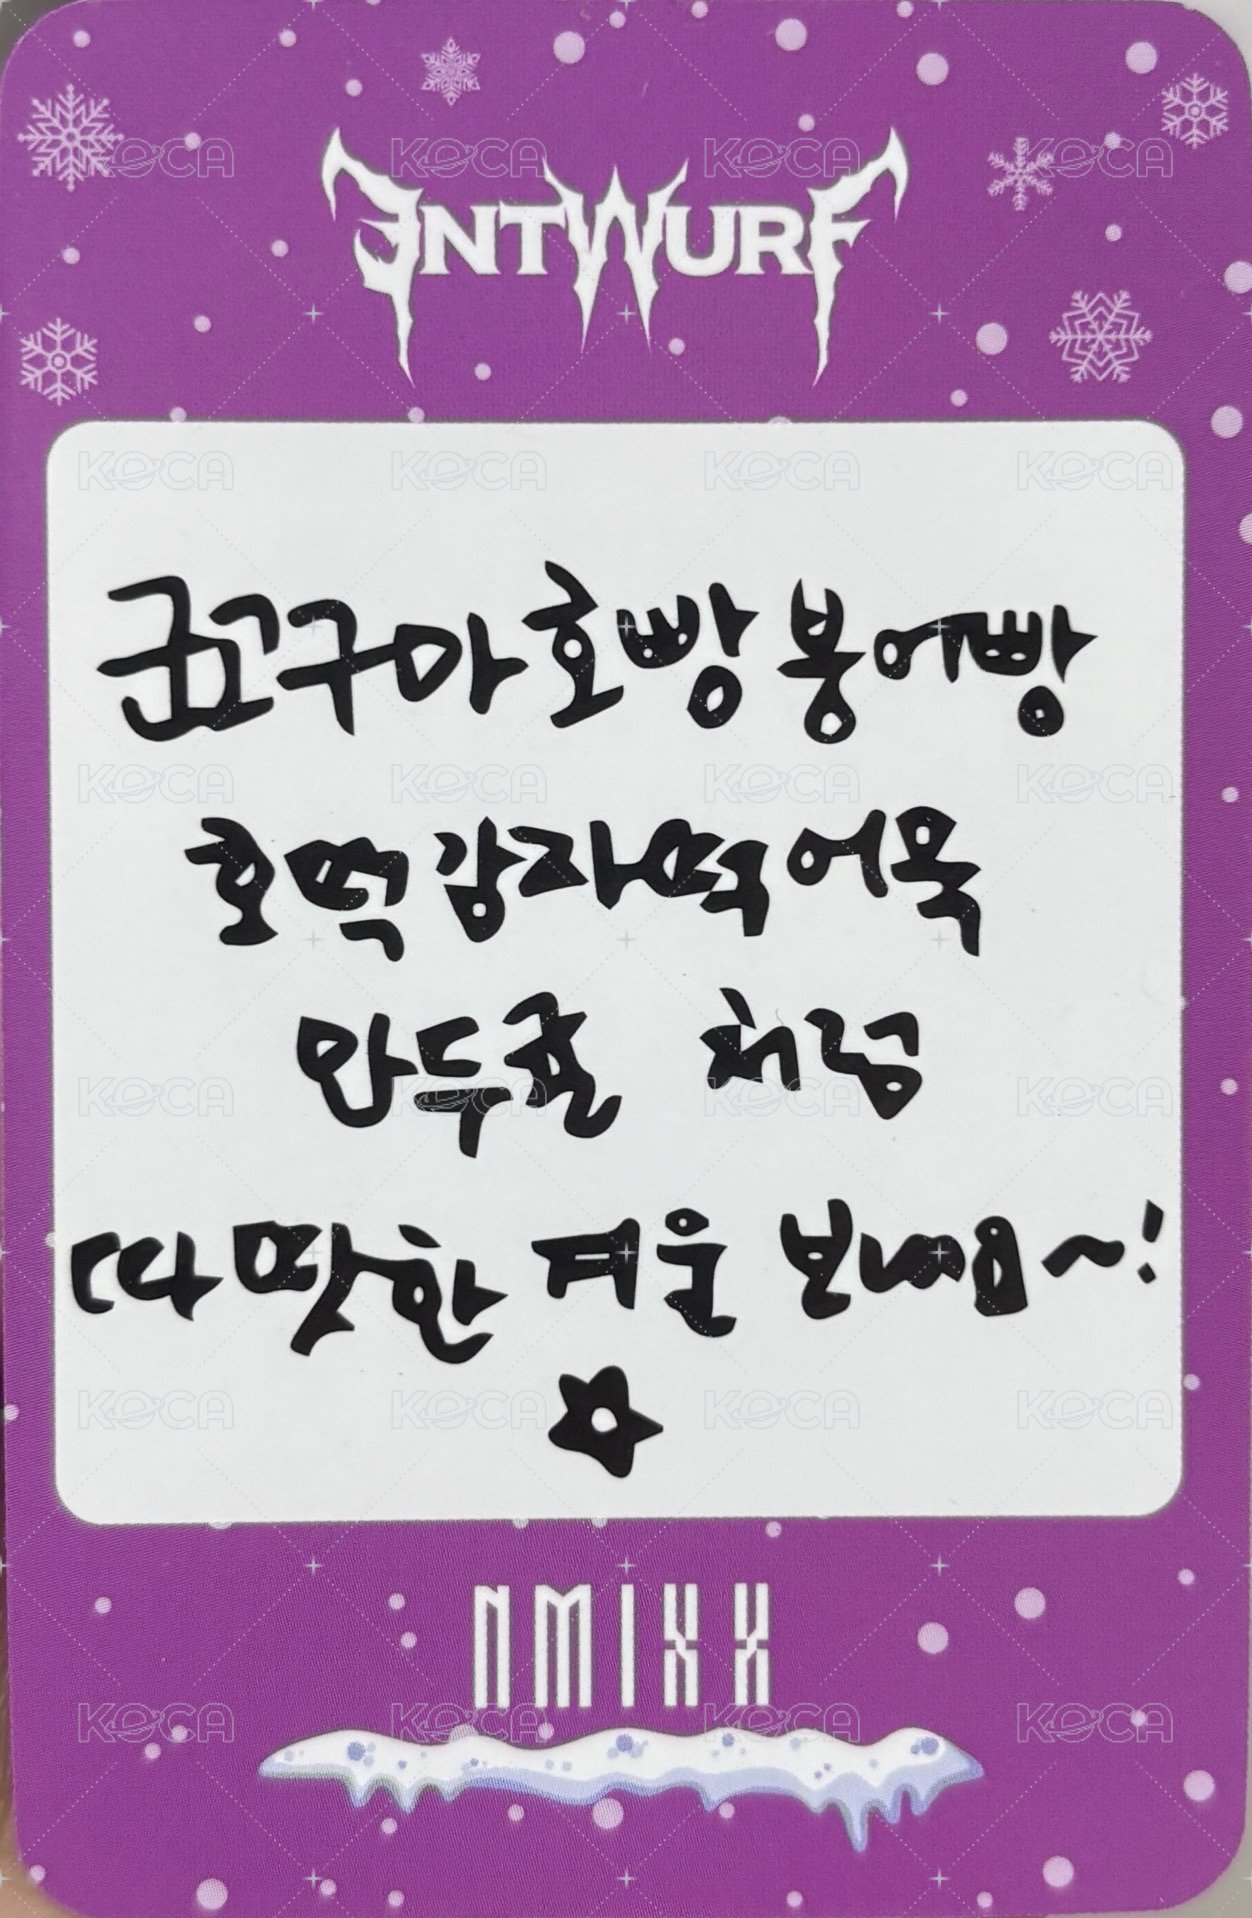 ENTWURF
군고구마 호빵 붕어빵
호떡 감자떡 어묵
만두귤 처럼
따땃한 겨울 보내용~!
NMIXX
KOCA